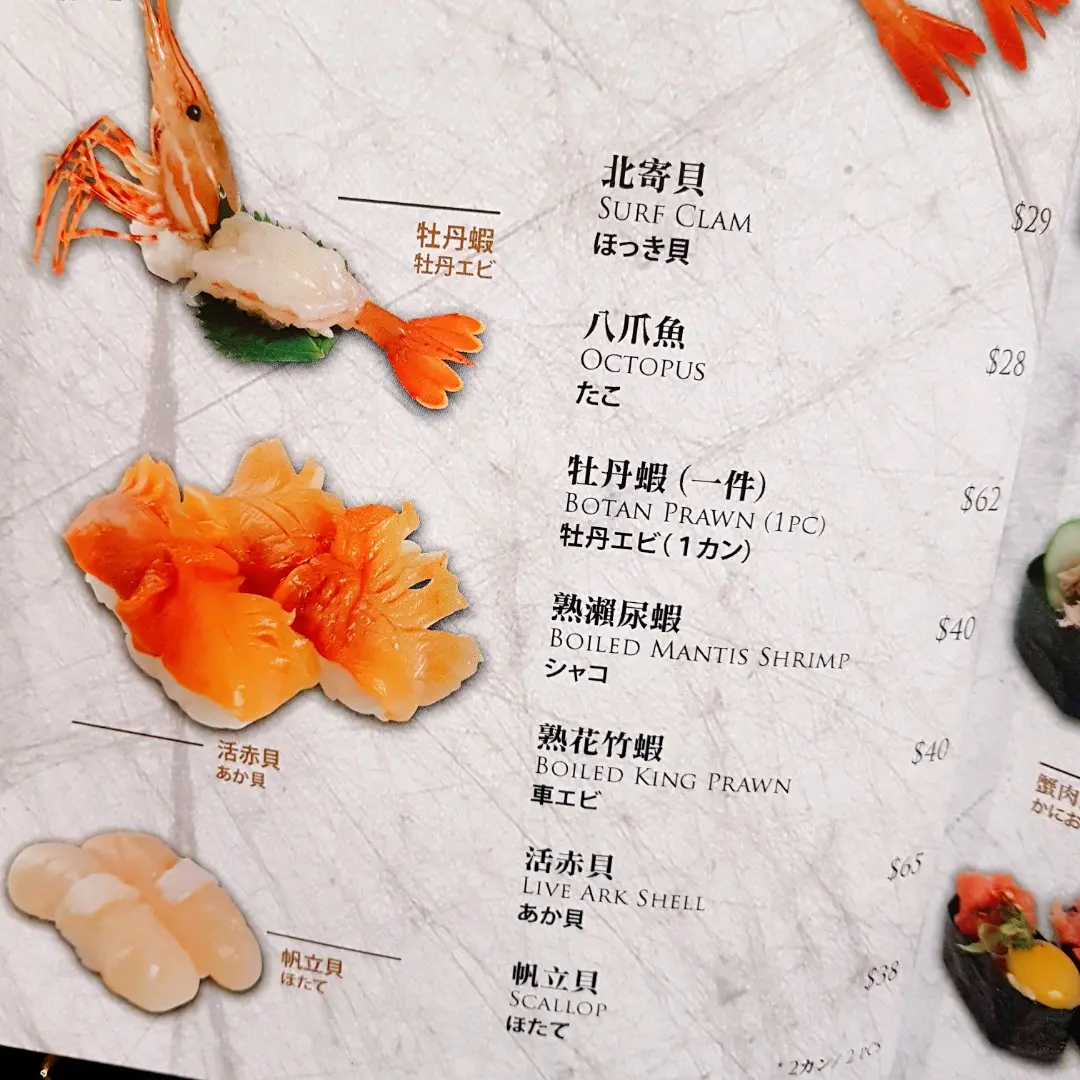 牡丹蝦
牡丹エビ
活赤貝
あか貝
帆立貝
ほたて
北寄貝
SURF CLAM
$29
ほっき貝
八爪魚
OCTOPUS
$28
たこ
牡丹蝦 (一件)
BOTAN PRAWN (1PC)
$62
牡丹エビ(1カン)
熟瀨尿蝦
BOILED MANTIS SHRIMP
$40
シャコ
熟花竹蝦
BOILED KING PRAWN
$40
車エビ
活赤貝
LIVE ARK SHELL
$65
あか貝
帆立貝
SCALLOP
$38
ほたて
*2カン/2PCS
蟹肉
かにお